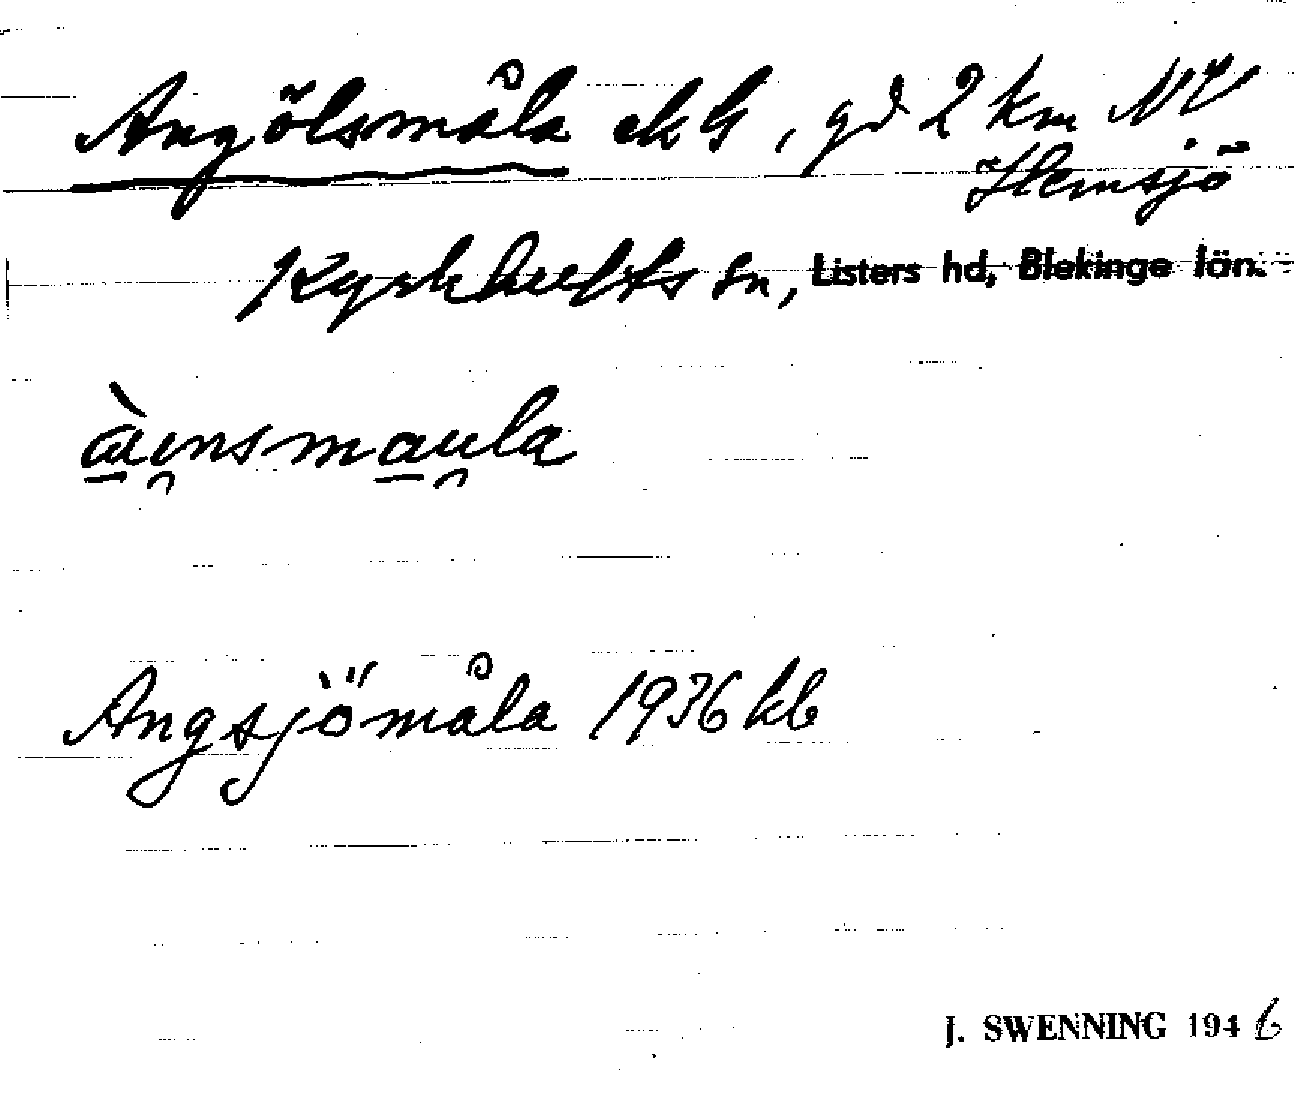 Angölsmåla ek G, gd 2 km NV
Hemsjö
Kyrkhults sn, Listers hd, Blekinge län.
Angsjömåla 1936 kb
J. SWENNING 1946